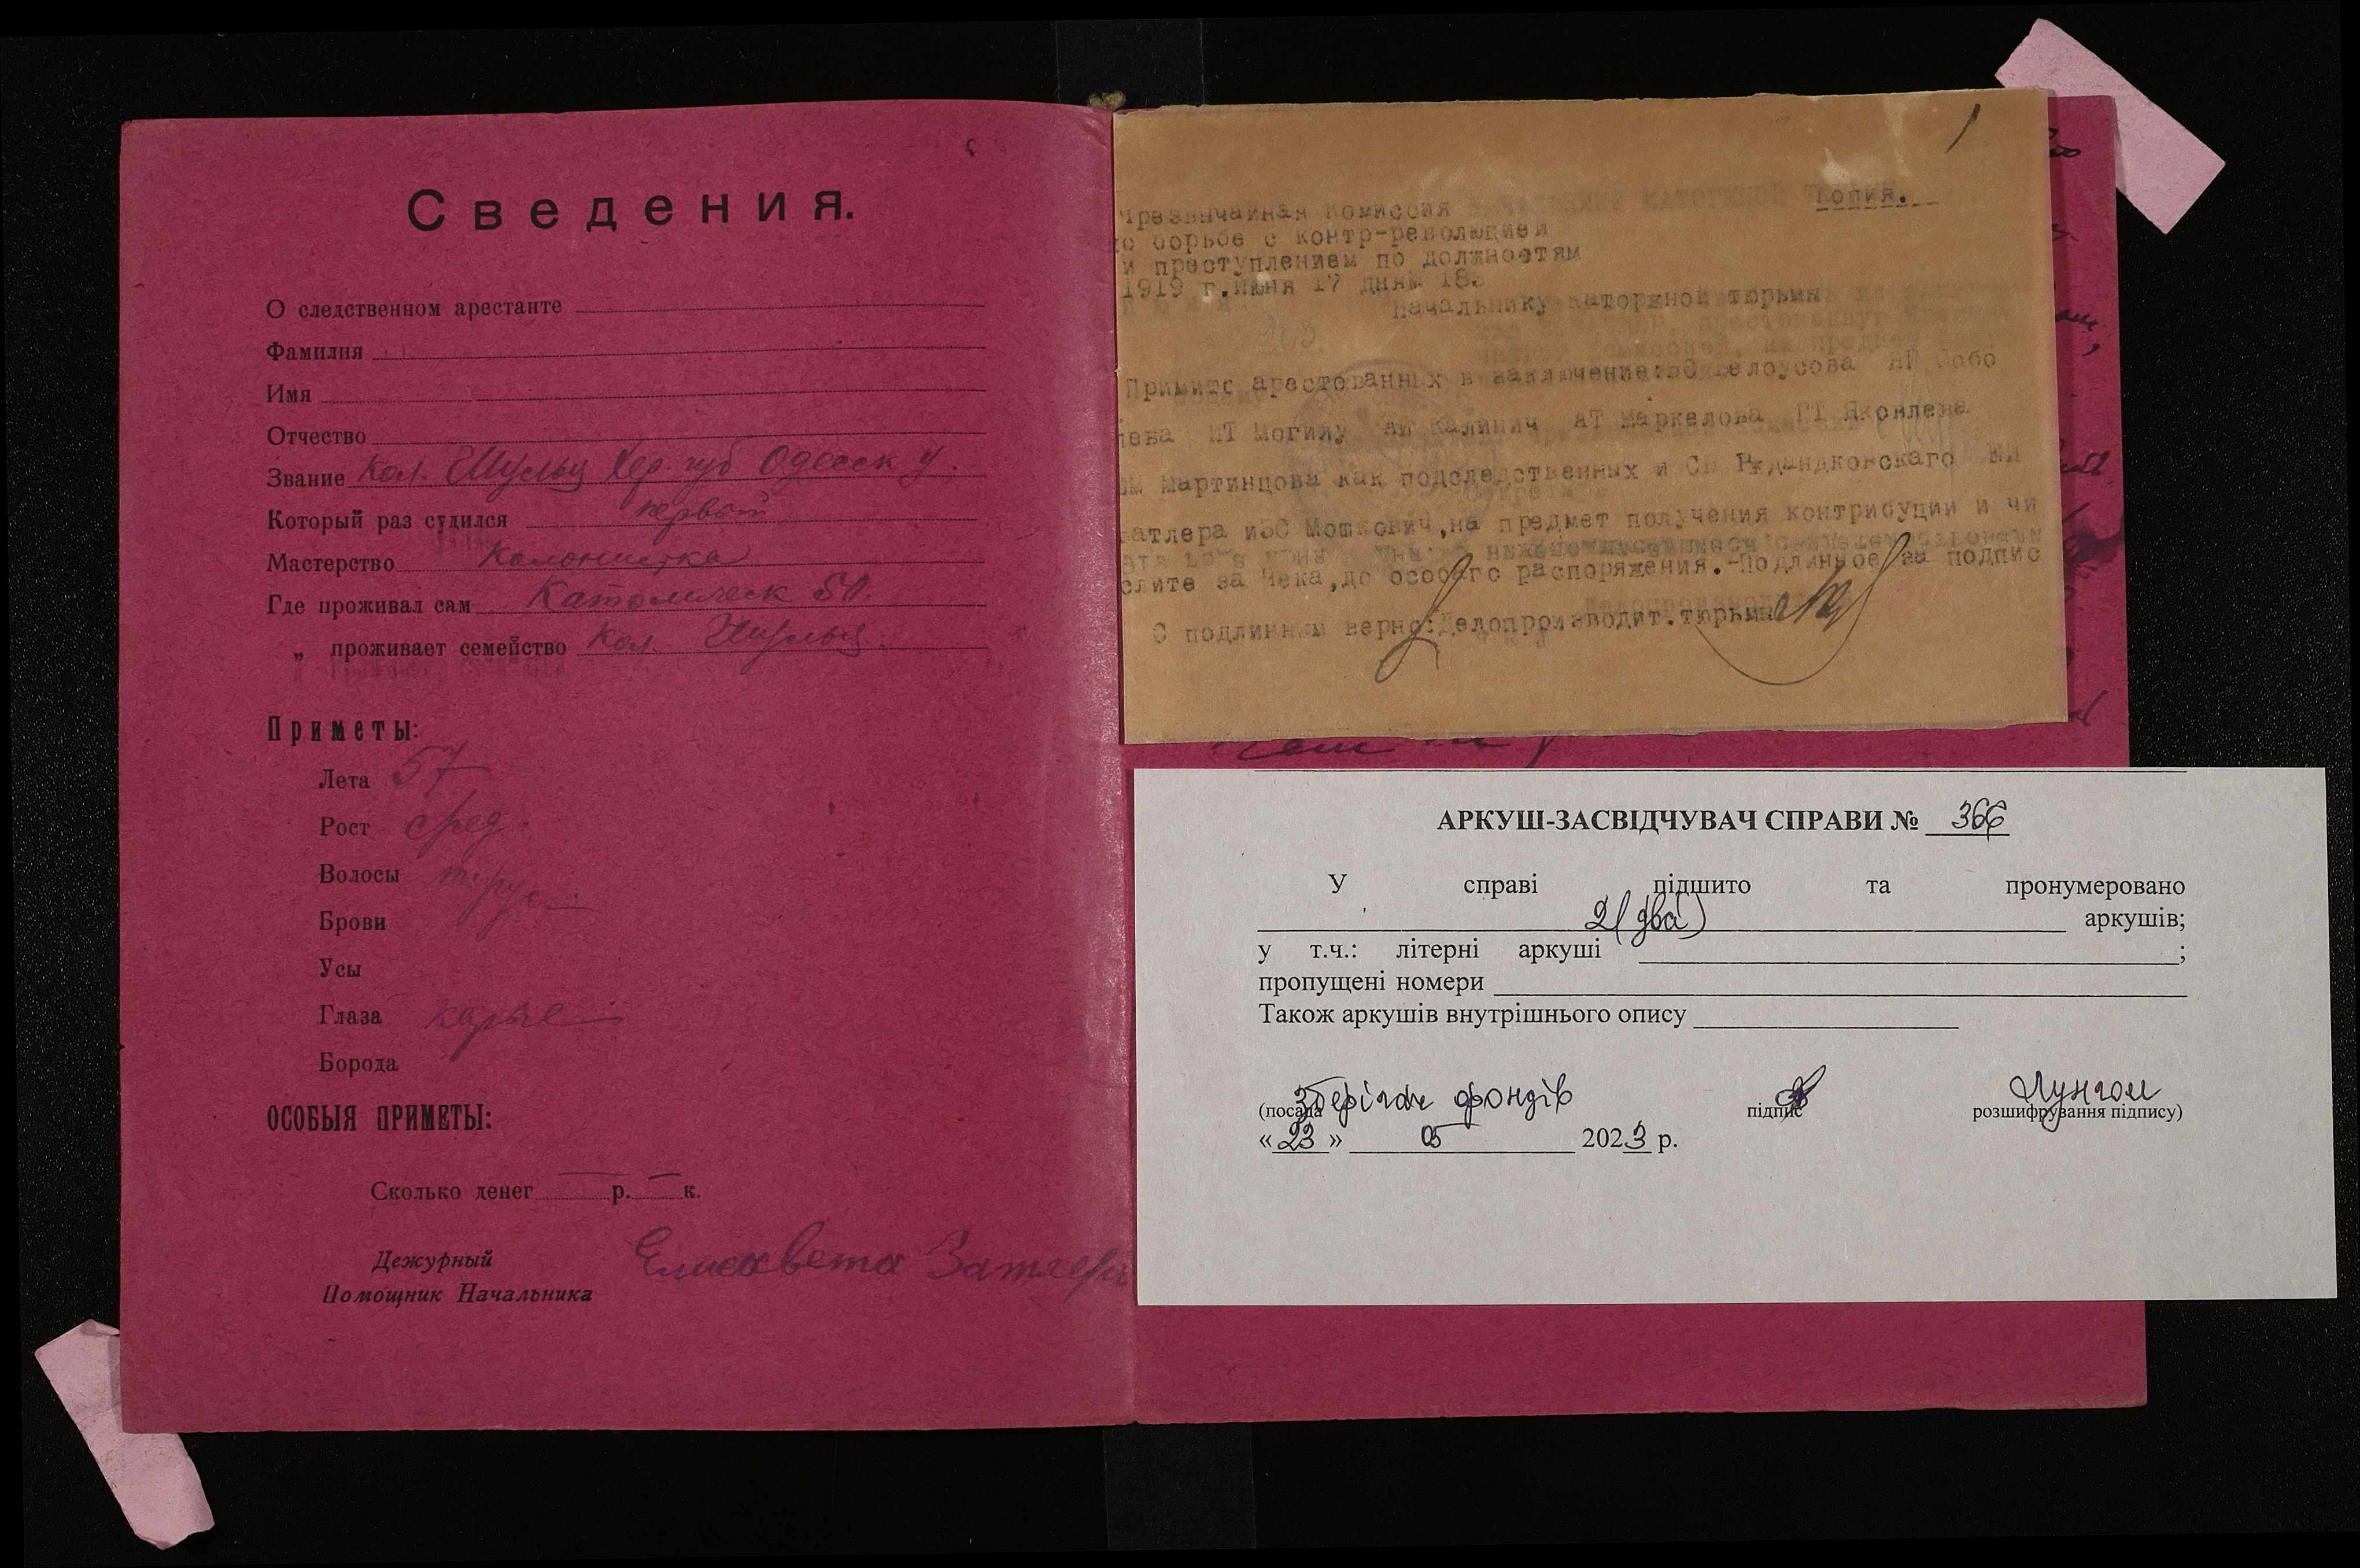 Сведения.
О следственном арестанте
Фамилия
Имя
Отчество
Звание Кол. Шульц Хер. губ Одесск у.
Который раз судился первый
Мастерство Колонистка
Где проживал сам Католическ 50.
„ проживает семейство Кол. Шульц.
Приметы:
Лета 57
Рост сред.
Волосы т. рус.
Брови
Усы
Глаза карие
Борода
ОСОБЫЯ ПРИМЕТЫ:
Сколько денег — р. — к.
Дежурный
Помощник Начальника
Елисавета Затлер
1
Копия.
Чрезвычайная Комиссия
по борьбе с контр-революцией
и преступлением по должностям
1919 г. июня 17 дня № 183
Начальнику каторжной тюрьмы
Примите арестованных в заключение: Белоусова ЯИ Собо
лева МТ Могилу АИ Калинич АТ Маркелова ГТ Яковлева
ИМ Мартинцова как подследственных и СВ МД
Затлера и ЗС Мошкович, на предмет получения контрибуции и чи
слите за Чека, до особаго распоряжения.-Подлинное за подпис
С подлинным верно: Делопроизводит. тюрьмы
АРКУШ-ЗАСВІДЧУВАЧ СПРАВИ № 366
У справі підшито та пронумеровано
2 (два) аркушів;
у т.ч.: літерні аркуші ;
пропущені номери
Також аркушів внутрішнього опису
Зберігач фондів Лунгол
(посада підпис розшифрування підпису)
« 23 » 05 2023 р.